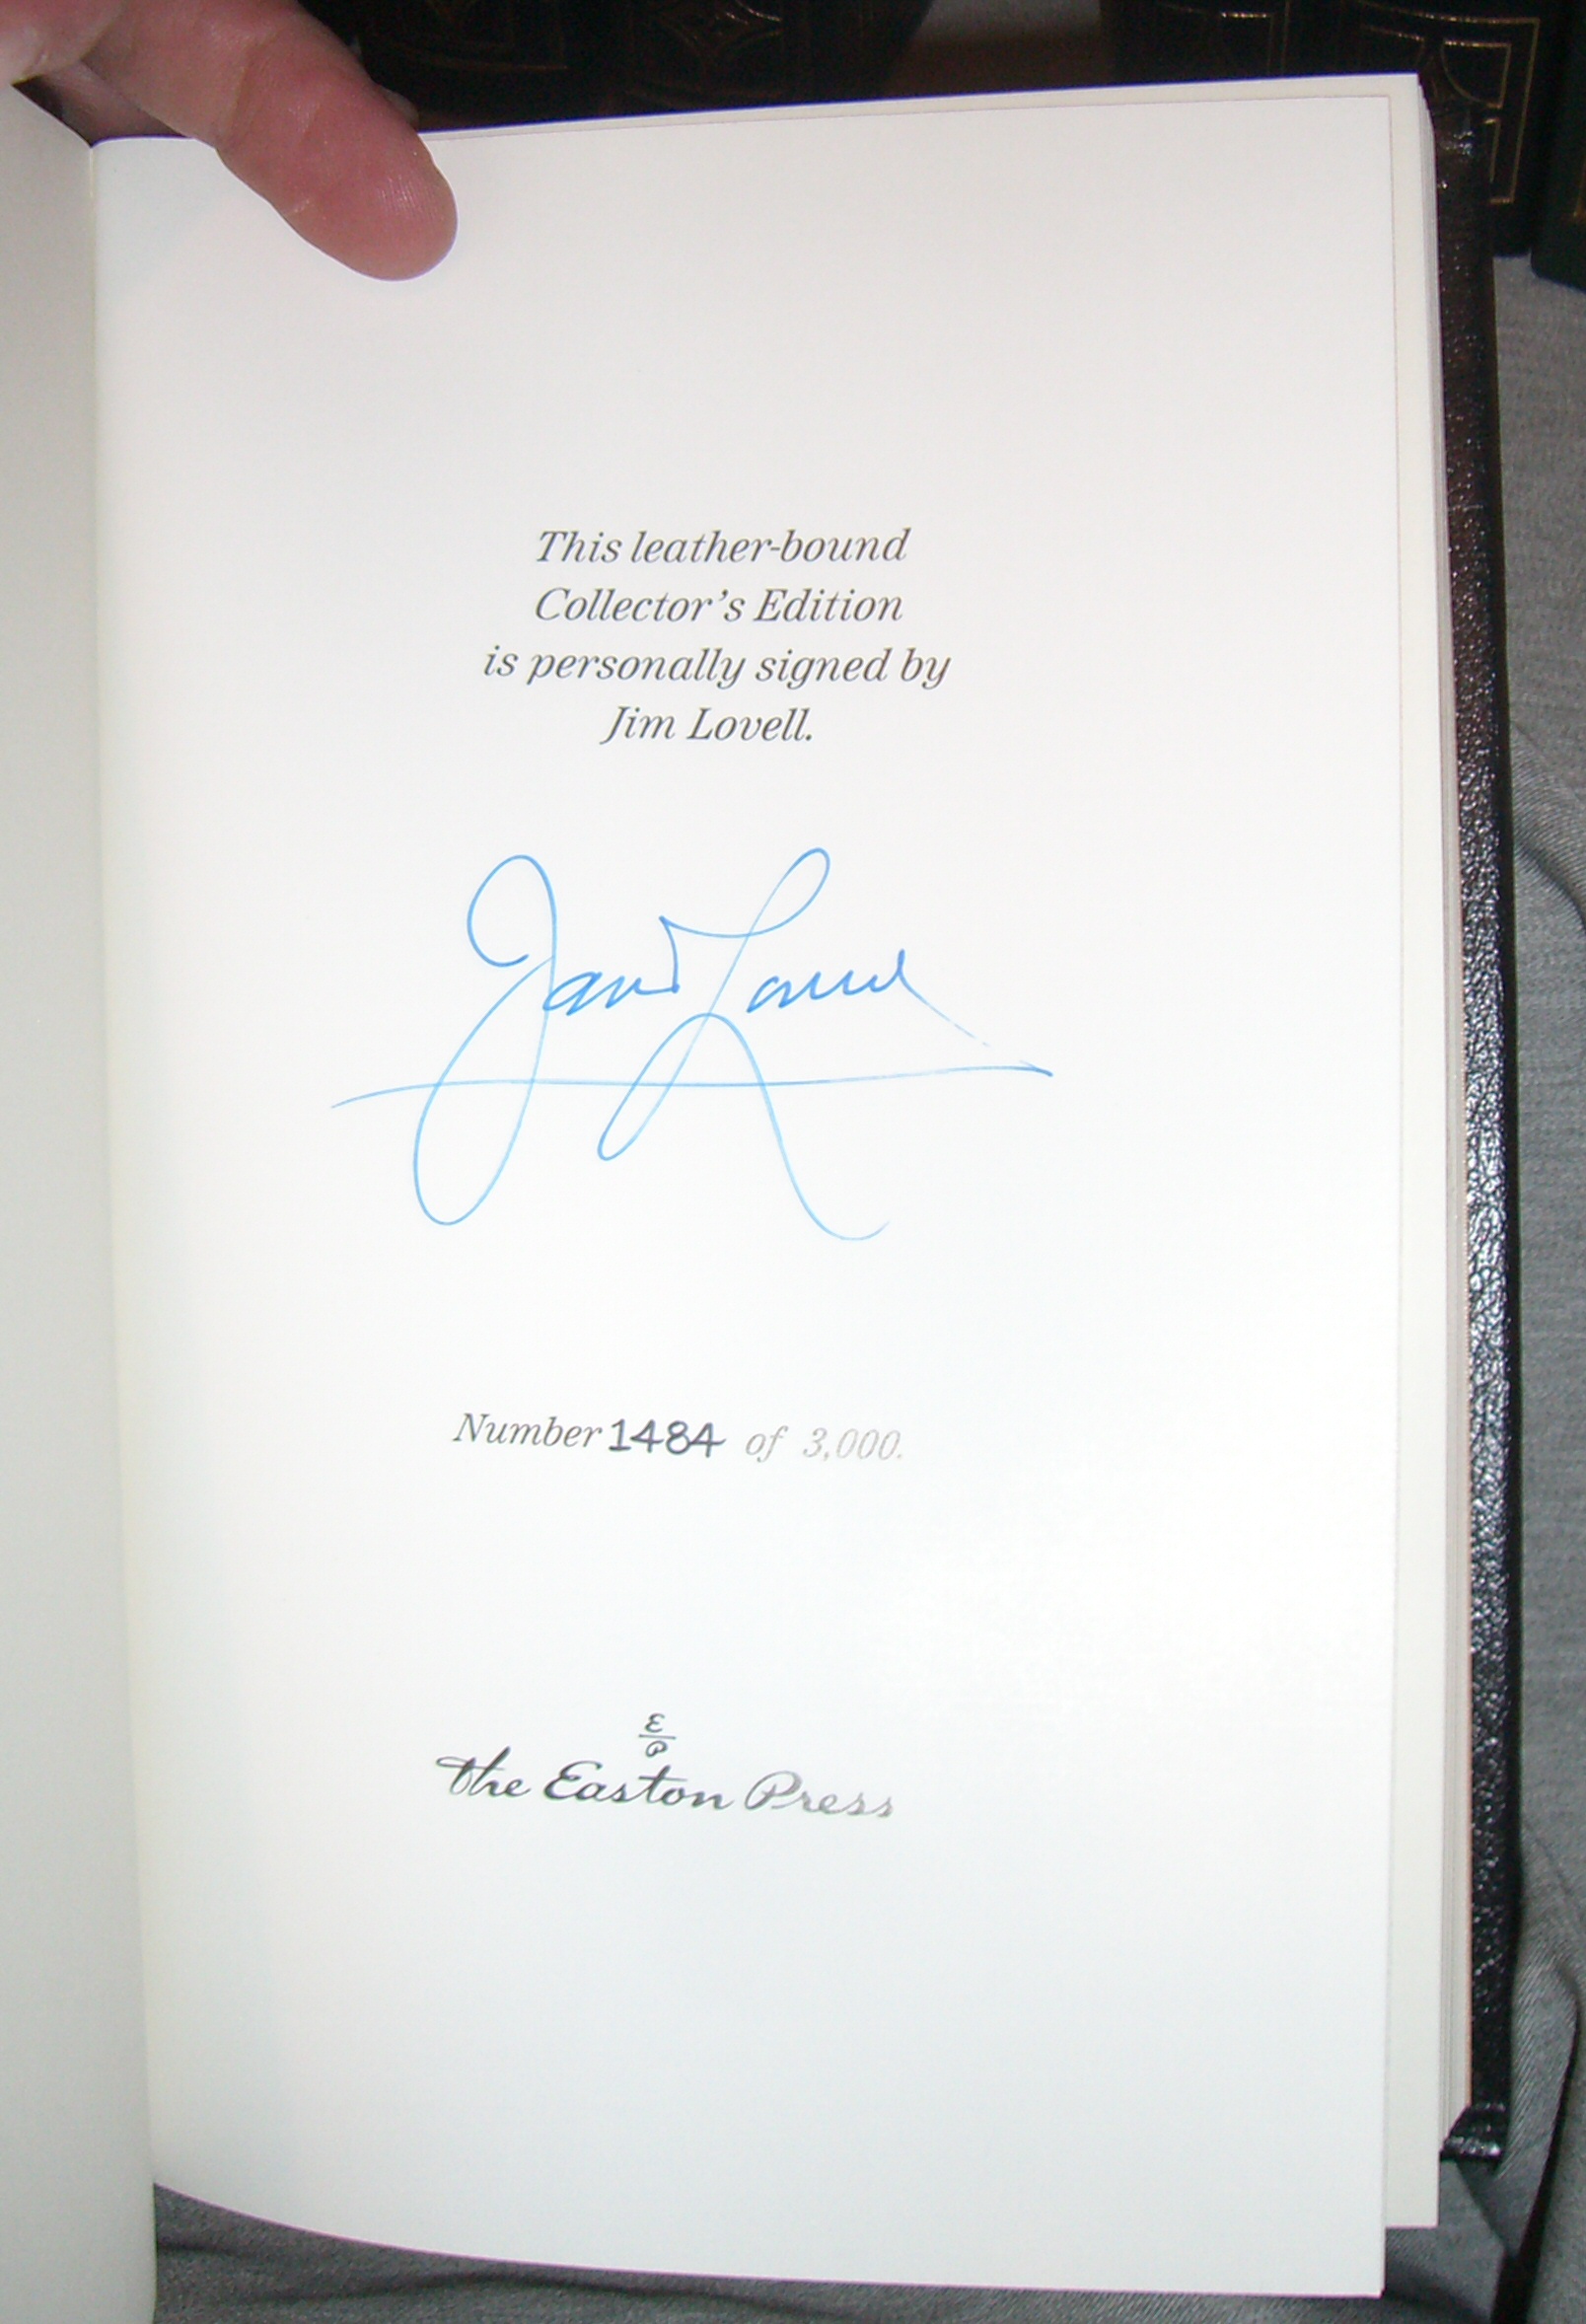 This leather-bound
Collector's Edition
is personally signed by
Jim Lovell.
James Lovell
Number 1484 of 3,000.
E
P
the Easton Press